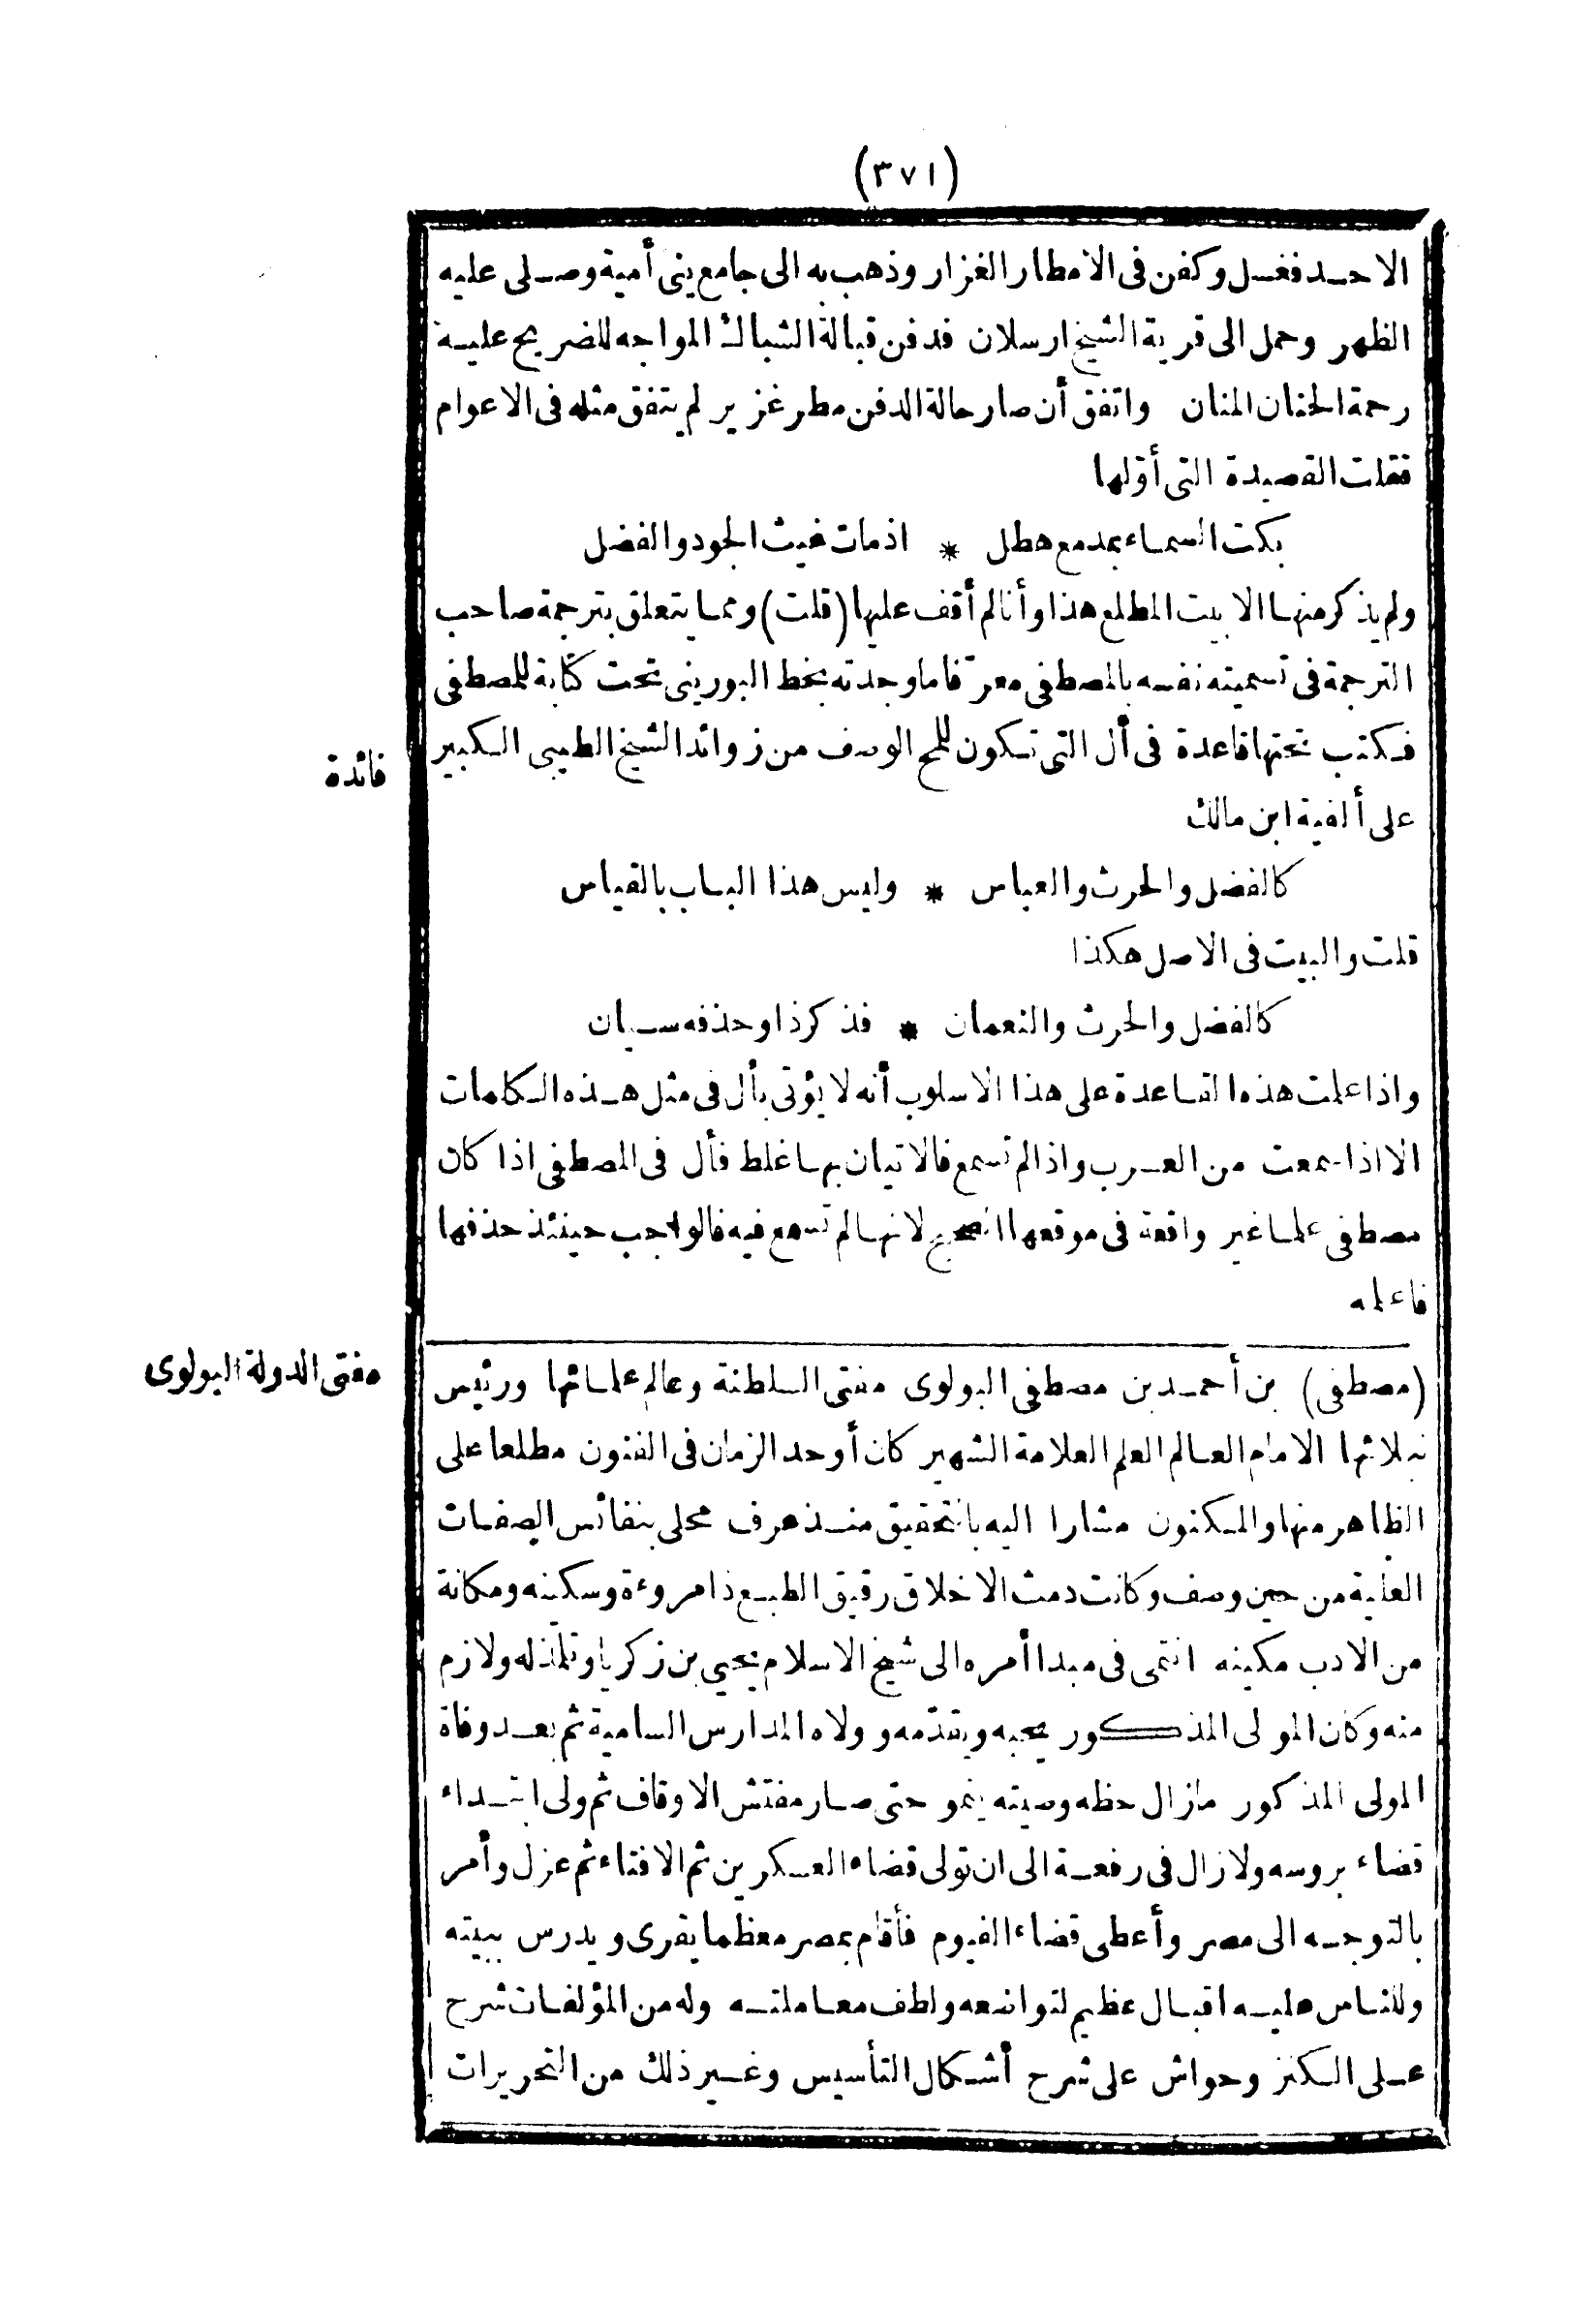 (٣٧١)
الاحد فغسل وكفن فى الامطار الغزار وذهب به الى جامع بنى أمية وصلى عليه
الظهر وحمل الى قرية الشيخ ارسلان فدفن قبالة الشباك المواجه للضريح عليه
رحمة الحنان المنان واتفق أن صار حالة الدفن مطر غزير لم يتفق مثله فى الاعوام
فقلت القصيدة التى أوّلها
بكت السماء بمدمع هطل * اذمات غيث الجود والفضل
ولم يذكر منها الا بيت المطلع هذا وأنا لم أقف عليها (قلت) ومما يتعلق بترجمة صاحب
الترجمة فى تسميته نفسه بالمصطفى معرّفا ما وجدته بخط البورينى تحت كتابة للمصطفى
فكتب تحتها قاعدة فى أل التى تكون للمح الوصف من زوائد الشيخ الطيبى الكبير
فائدة
على ألفية ابن مالك
كالفضل والحرث والعباس * وليس هذا الباب بالقياس
قلت والبيت فى الاصل هكذا
كالفضل والحرث والنعمان * فذكر ذا وحذفه سيان
واذا علمت هذه القاعدة على هذا الاسلوب أنه لا يؤتى بأل فى مثل هذه الكلمات
الا اذا سمعت من العرب واذا لم تسمع فالاتيان بها غلط فأل فى المصطفى اذا كان
مصطفى علما غير واقعة فى موقعها الصحيح لانها لم تسمع فيه فالواجب حينئذ حذفها
فاعلمه
مفتى الدولة البولوى
(مصطفى) بن أحمد بن مصطفى البولوى مفتى السلطنة وعالم علمائها ورئيس
نبلائها الامام العالم العلم العلامة الشهير كان أوحد الزمان فى الفنون مطلعا على
الظاهر منها والمكنون مشارا اليه بالتحقيق منذ عرف محلى بنفائس الصفات
العلية من حين وصف وكانت دمث الاخلاق رقيق الطبع ذا مروءة وسكينه ومكانة
من الادب مكينه انتمى فى مبدا أمره الى شيخ الاسلام يحيى بن زكريا وتلمذ له ولازم
منه وكان المولى المذكور يحبه ويقدّمه وولاه المدارس السامية ثم بعد وفاة
المولى المذكور مازال حظه وصيته ينمو حتى صار مفتش الاوقاف ثم ولى ابتداء
قضاء بروسه ولا زال فى رفعة الى ان تولى قضاء العسكرين ثم الافتاء ثم عزل وأمر
بالتوجه الى مصر وأعطى قضاء الفيوم فأقام بمصر معظما يقرى ويدرس ببيته
وللناس عليه اقبال عظيم لتواضعه ولطف معاملته وله من المؤلفات شرح
على الكنز وحواش على شرح أشكال التأسيس وغير ذلك من التحريرات